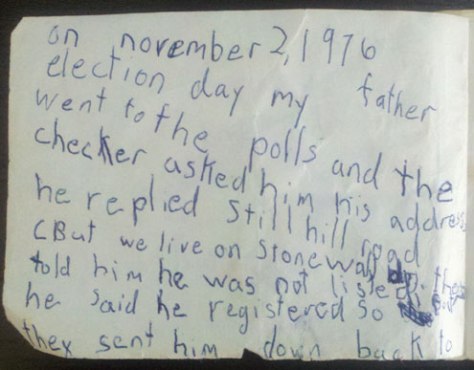 on november 2, 1976
election day my father
went to the polls and the
checker asked him his address
he replied Still hill road
CBut we live on stonewall
told him he was not listed. the
he said he registered so
they sent him down back to